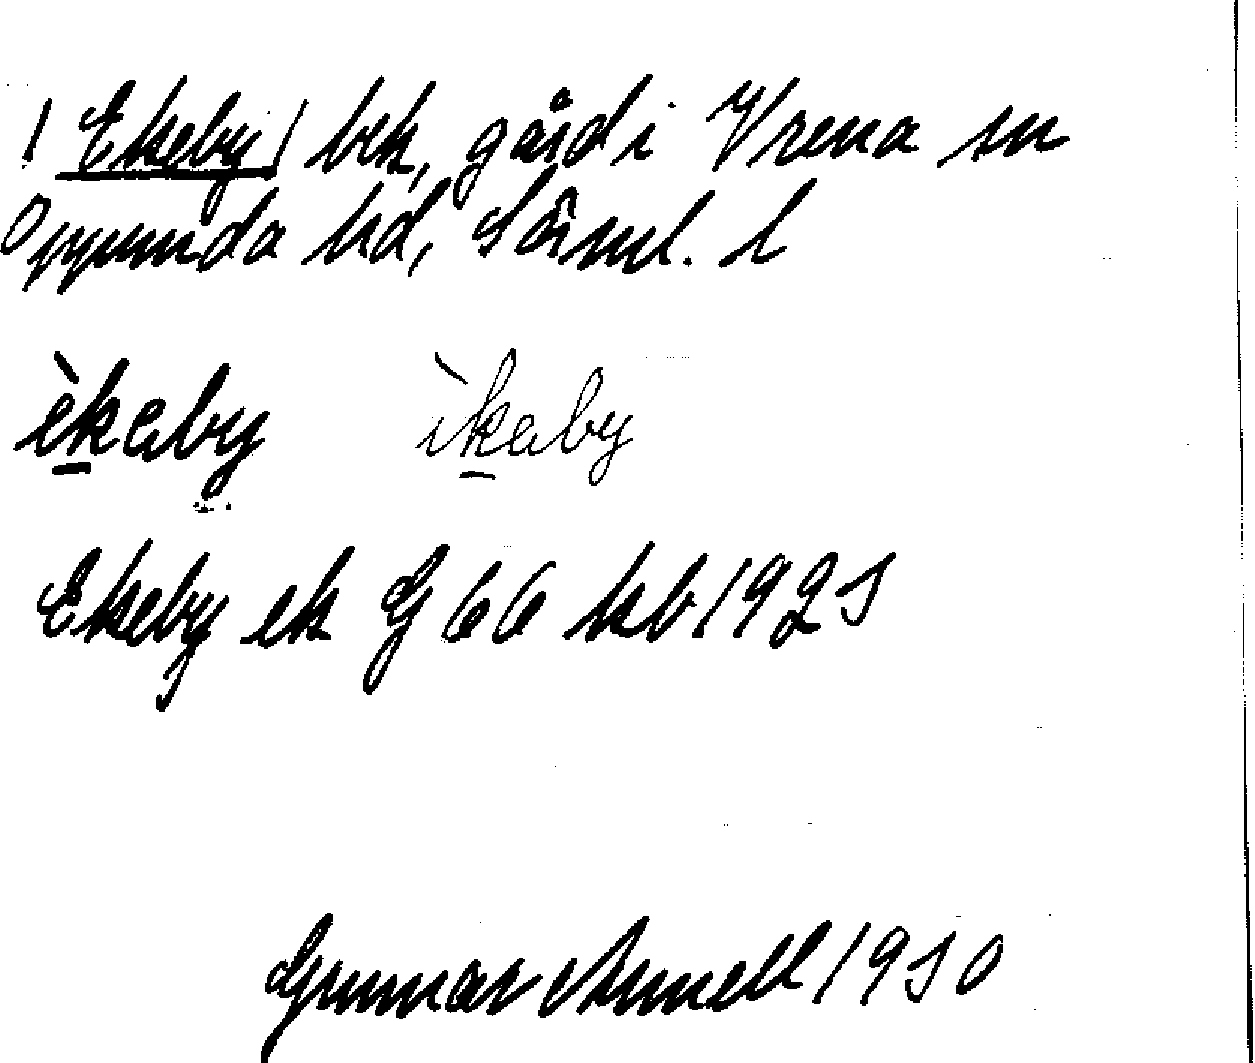 / Ekeby / bek, gård i Vrena sn
Oppunda hd, Sörml. l
èkeby ìkeby
Ekeby ek G 66 kb 1925
Gunnar Annell 1930